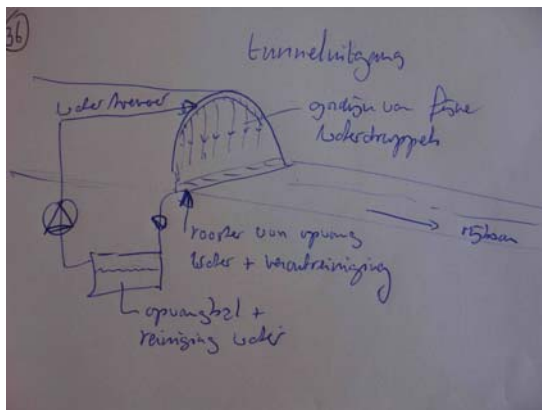 36
tunneluitgang
water toevoer
gordijn van fijne
waterdruppels
rooster van opvang
water + verontreiniging
rijbaan
opvangbak +
reiniging water